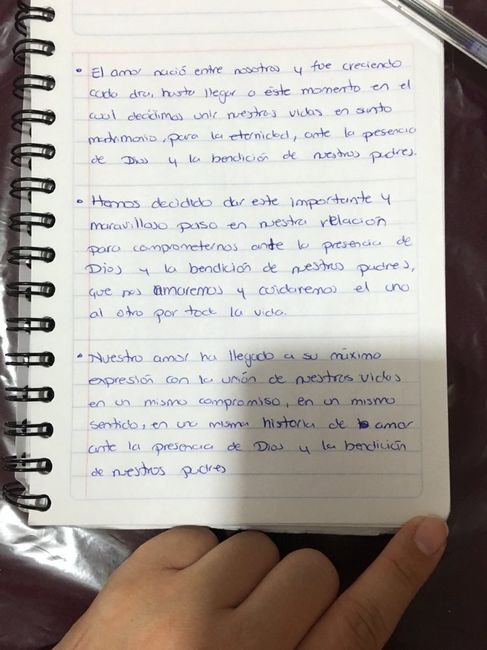 • El amor nació entre nosotros y fue creciendo
cada dia, hasta llegar a éste momento en el
cual decidimos unir nuestras vidas en santo
matrimonio, para la eternidad, ante la presencia
de Dios y la bendición de nuestros padres.
• Hemos decidido dar este importante y
maravilloso paso en nuestra relación
para comprometernos ante la presencia de
Dios y la bendición de nuestros padres,
que nos amaremos y cuidaremos el uno
al otro por toda la vida.
• Nuestro amor ha llegado a su máxima
expresión con la unión de nuestras vidas
en un mismo compromiso, en un mismo
sentido, en una misma historia de amor
ante la presencia de Dios y la bendición
de nuestros padres